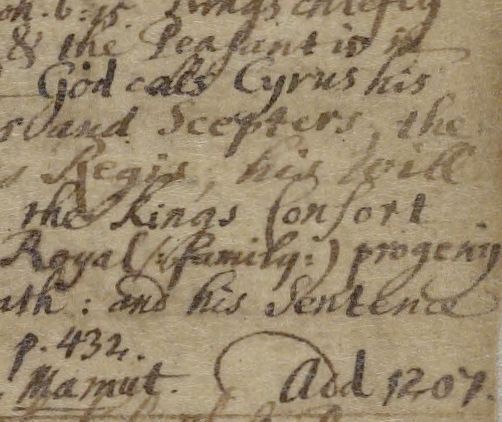 6:15. Kings chiefly
& the Peasant is
God cals Cyrus his
and Scepters, the
Regis, his Will
the Kings Consort
Royal (: family :) progeny
ath : and his Sentence
p. 432.
Mamut. Add 1207.